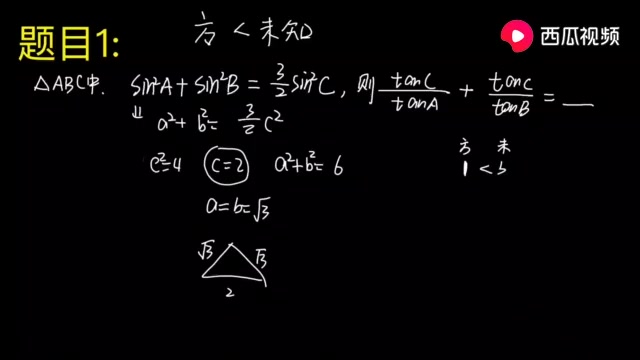 题目1:
方 < 未知
西瓜视频
△ABC中, sin²A + sin²B = 3/2 sin²C, 则 tanC/tanA + tanC/tanB = __
⇓ a² + b² = 3/2 c²
方 未
1 < 5
c²=4 c=2 a²+b²=6
a=b=√3
√3 √3
2